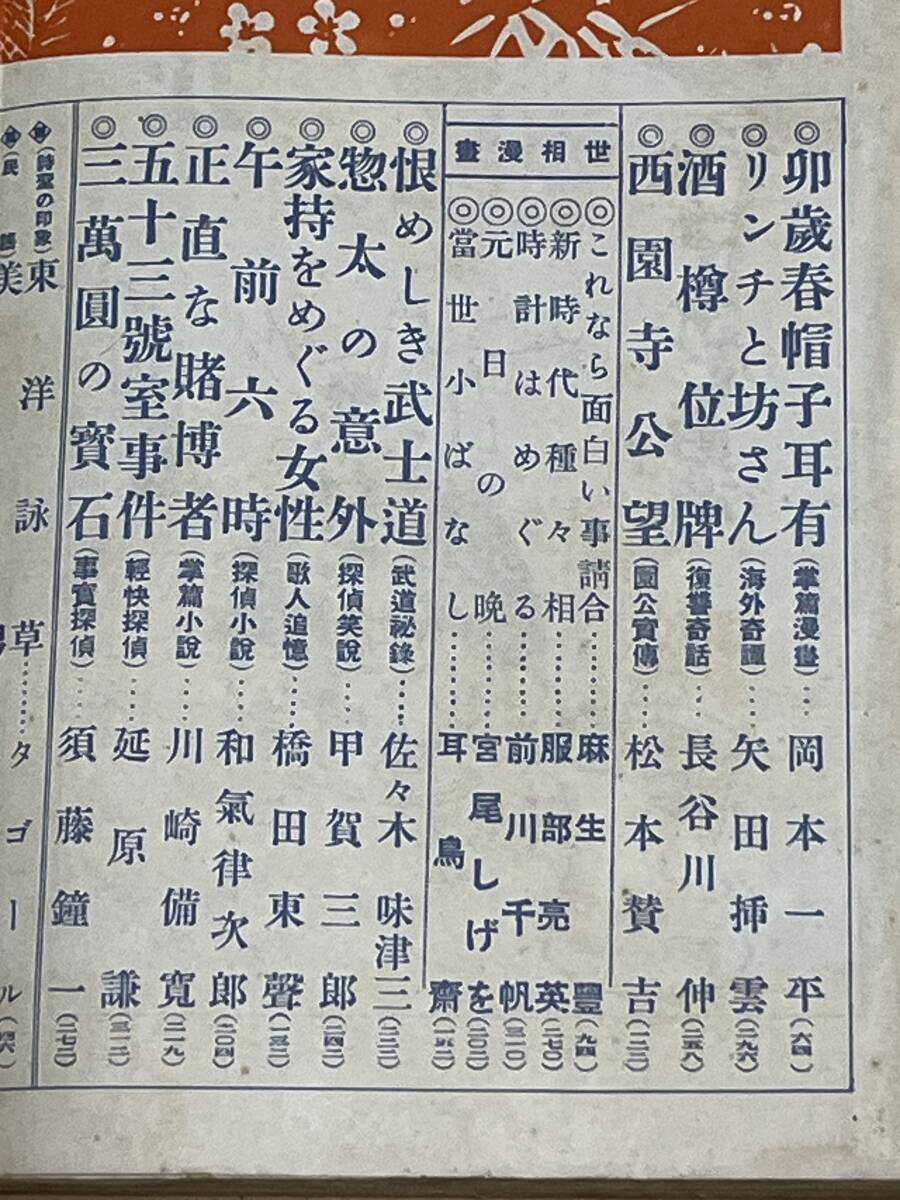 ◎卯歳春帽子耳有(掌篇漫畫)…岡本一平(六四)
◎リンチと坊さん(海外奇譚)…矢田挿雲(二九六)
◎酒樽位牌(復讐奇話)…長谷川伸(二五八)
◎西園寺公望(園公實傳)…松本賛吉(一二二)
世相漫畫
◎これなら面白い事請合…麻生豐(九四)
◎新時代種々相…服部亮英(一七〇)
◎時計はめぐる…前川千帆(三一〇)
◎元日の晩…宮尾しげを(二〇二)
◎當世小ばなし…耳鳥齋
◎恨めしき武士道(武道祕錄)…佐々木味津三
◎惣太の意外(探偵笑說)…甲賀三郎(二四二)
◎家持をめぐる女性(歌人追憶)…橋田東聲
◎午前六時(探偵小說)…和氣律次郎(二〇四)
◎正直な賭博者(掌篇小說)…川崎備寬(二一九)
◎五十三號室事件(輕快探偵)…延原謙
◎三萬圓の寶石(事實探偵)…須藤鐘一(二七二)
(詩聖の印象)東洋詠草…タゴール